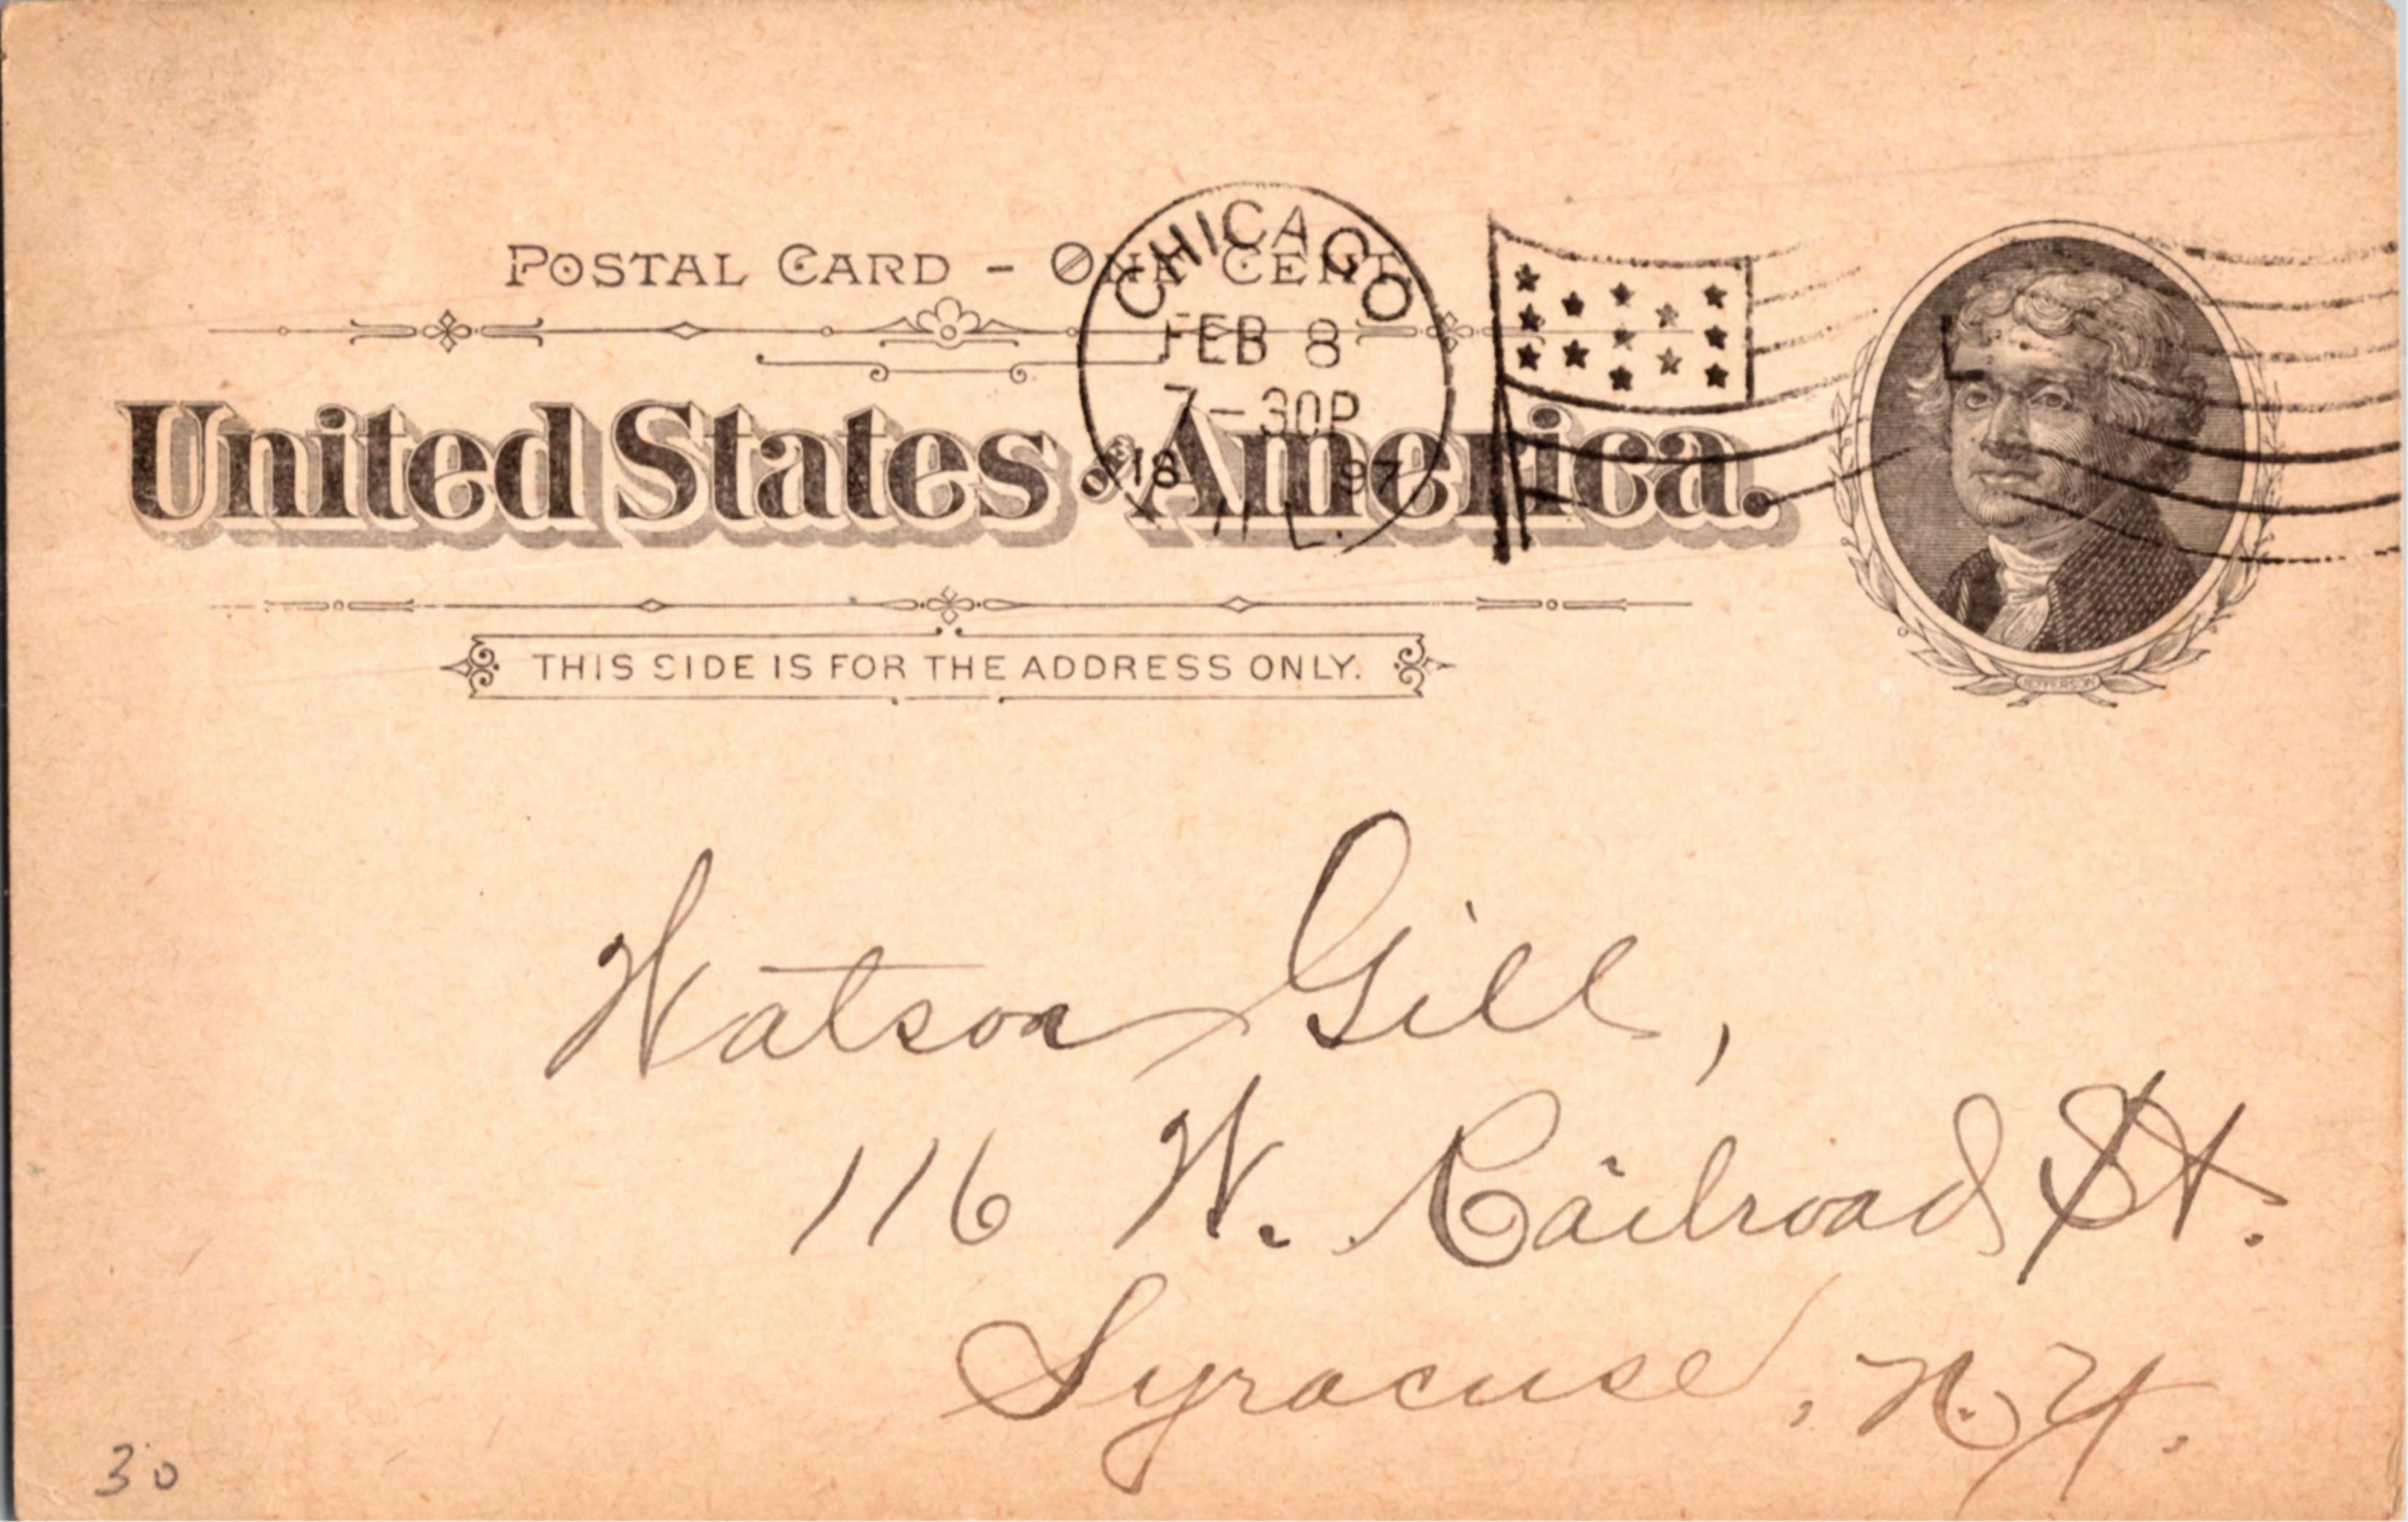 POSTAL CARD - ONE CENT
CHICAGO
FEB 8
7-30P
18 97
ILL.
United States of America.
JEFFERSON
THIS SIDE IS FOR THE ADDRESS ONLY.
Watson Gill,
116 W. Railroad St.
Syracuse, N.Y.
30